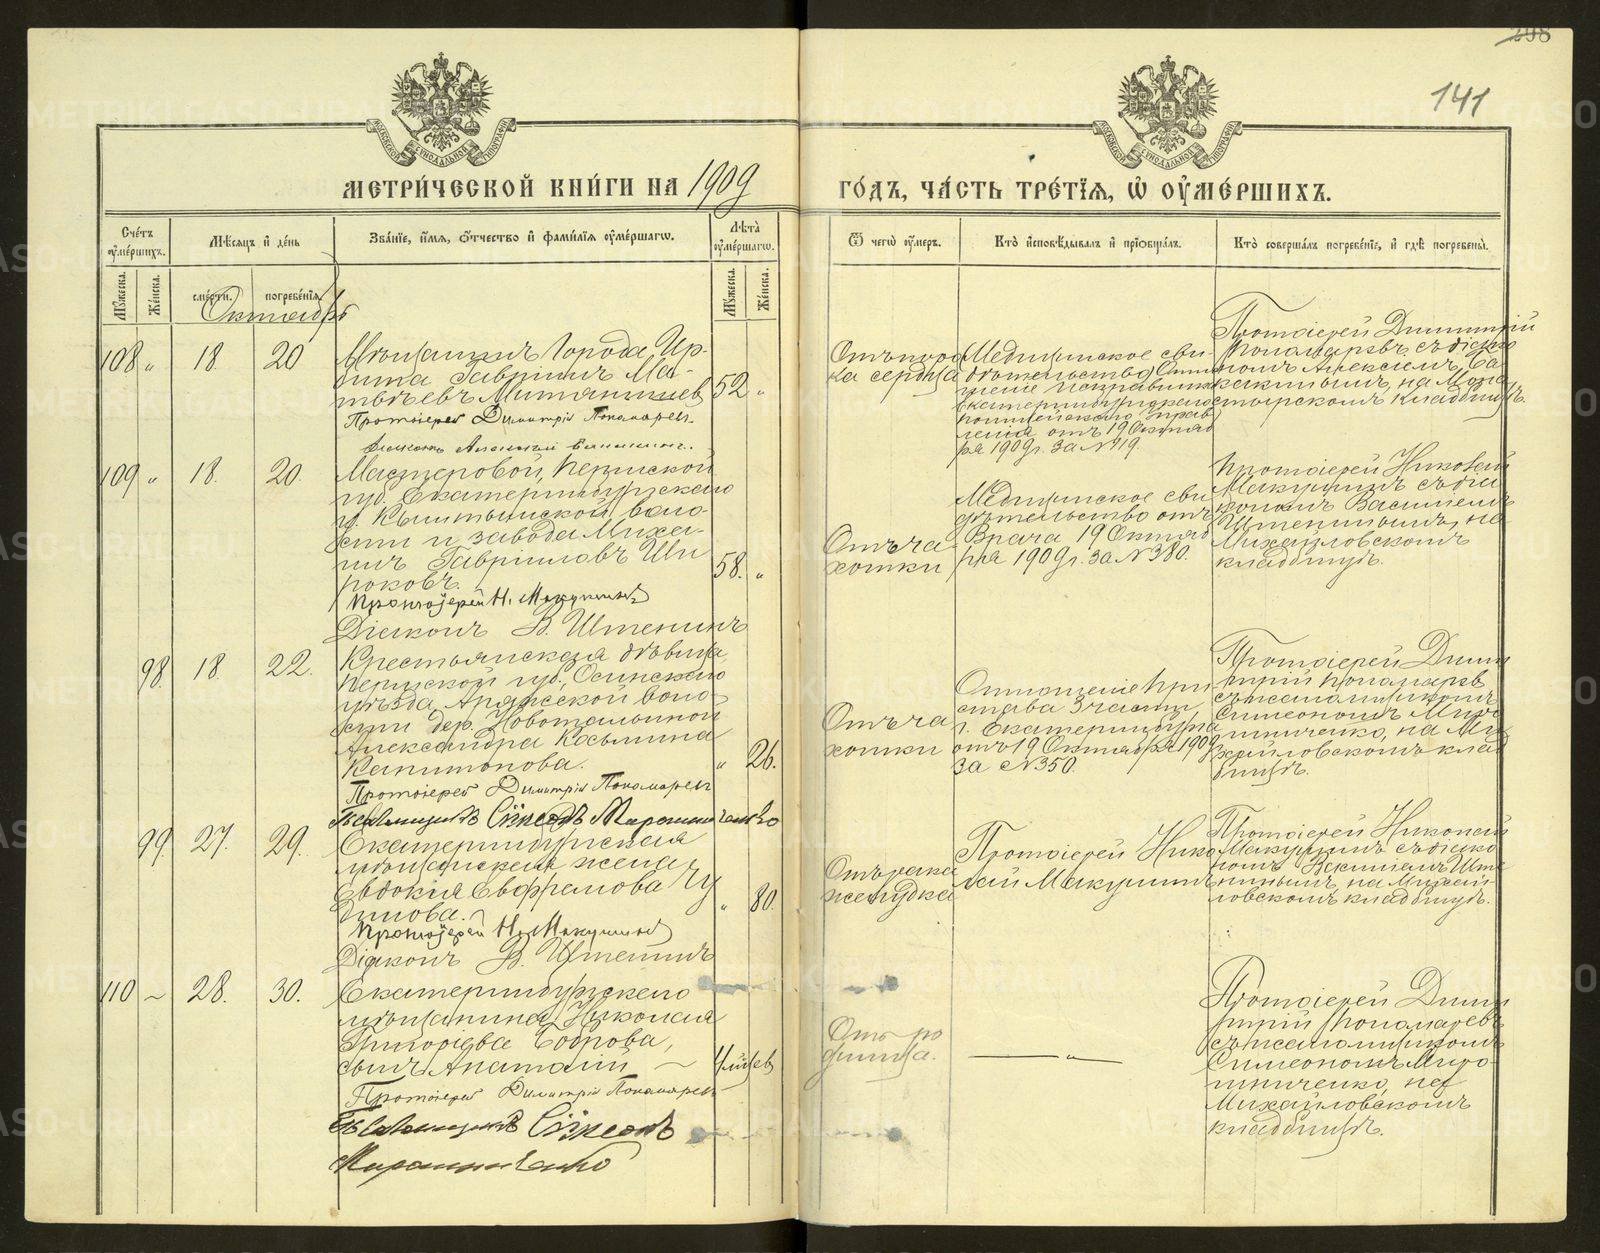 298
141
МЕТРИ́ЧЕСКОЙ КНИ́ГИ НА 1909
ГО́ДЪ, ЧА́СТЬ ТРЕ́ТЇѦ, Ѽ ОУ҆МЕ́РШИХЪ.
Сче́тъ оу҆ме́ршихъ.
Мѣ́сяцъ и҆ де́нь
Зва́нїе, и҆́мѧ, ѻ҆́тчество и҆ фами́лїѧ оу҆ме́ршагѡ.
Лѣ́та оу҆ме́ршагѡ.
Ѿ чегѡ̀ оу҆́меръ.
Кто̀ и҆сповѣ́дывалъ и҆ прїѡбща́лъ.
Кто̀ соверша́лъ погребе́нїе, и҆ гдѣ̀ погребены̀.
Мꙋ́жеска.
Же́нска.
сме́рти.
погребе́нїѧ
Мꙋ́жеска.
Же́нска.
Октябрь
108 „ 18. 20
Мѣщанинъ города Ир-
бита Гавріилъ Мат-
твѣевъ Митанишев
52 „
Протоіерей Димитрій Пономаревъ.
Отъ поро-
ка сердца
Медицинское сви-
дѣтельство Отно-
шеніе исправника
Екатеринбургскаго
полицейскаго Управ
ленія отъ 19 Октяб
ря 1909 г. за №119.
Протоіерей Димитрій
Пономаревъ съ діако
номъ Алексіемъ Ба
какинымъ, на Мона
стырскомъ кладбищѣ.
109 „ 18. 20.
Мастеровой, Пермской
губ. Екатеринбургскаго
у. Кыштымской воло-
сти и завода Михаи-
илъ Гавріиловъ Ши
роковъ.
58. „
Протоіерей Н. Макушинъ
Діаконъ В. Иштенинъ
Отъ ча-
хотки
Медицинское сви
дѣтельство отъ
Врача 19 Октяб
ря 1909 г. за №380.
Протоіерей Николай
Макушинъ съ діа
кономъ Василіемъ
Иштенинымъ, на
Михайловскомъ
кладбищѣ.
98. 18. 22.
Крестьянская дѣвица,
Пермской губ., Осинскаго
уѣзда, Аряжской воло-
сти дер. Новотальиной
Александра Косьмина
Капитонова.
„ 26.
Протоіерей Димитрій Пономаревъ
Псаломщикъ Сѵмеонъ Мирошниченко
Отъ ча
хотки
Отношеніе При
става 3 части,
г. Екатеринбурга
отъ 19 Октября 1909
за №350.
Протоіерей Дими
трій Пономаревъ
съ псаломщикомъ
Симеономъ Миро
шниченко, на Ми
хайловскомъ клад
бищѣ.
99. 27. 29.
Екатеринбургская
мѣщанская жена
Евдокія Евфремова Чу
динова.
„ 80.
Протоіерей Н. Макушинъ
Діаконъ В. Иштенинъ
Отъ рака
желудка
Протоіерей Нико
лай Макушинъ
Протоіерей Николай
Макушинъ съ діако
номъ Василіемъ Иште
нинымъ, на Михай
ловскомъ кладбищѣ.
110 – 28. 30.
Екатеринбургскаго
мѣщанина Николая
Григоріева Боброва,
сынъ Анатолій –
4 мѣсяц.
Протоіерей Димитрій Пономаревъ
Псаломщикъ Сѵмеонъ
Мирошниченко
Отъ ро
димца.
— „ —
Протоіерей Дими
трій Пономаревъ
съ псаломщикомъ
Симеономъ Миро-
шниченко, на
Михайловскомъ
кладбищѣ.